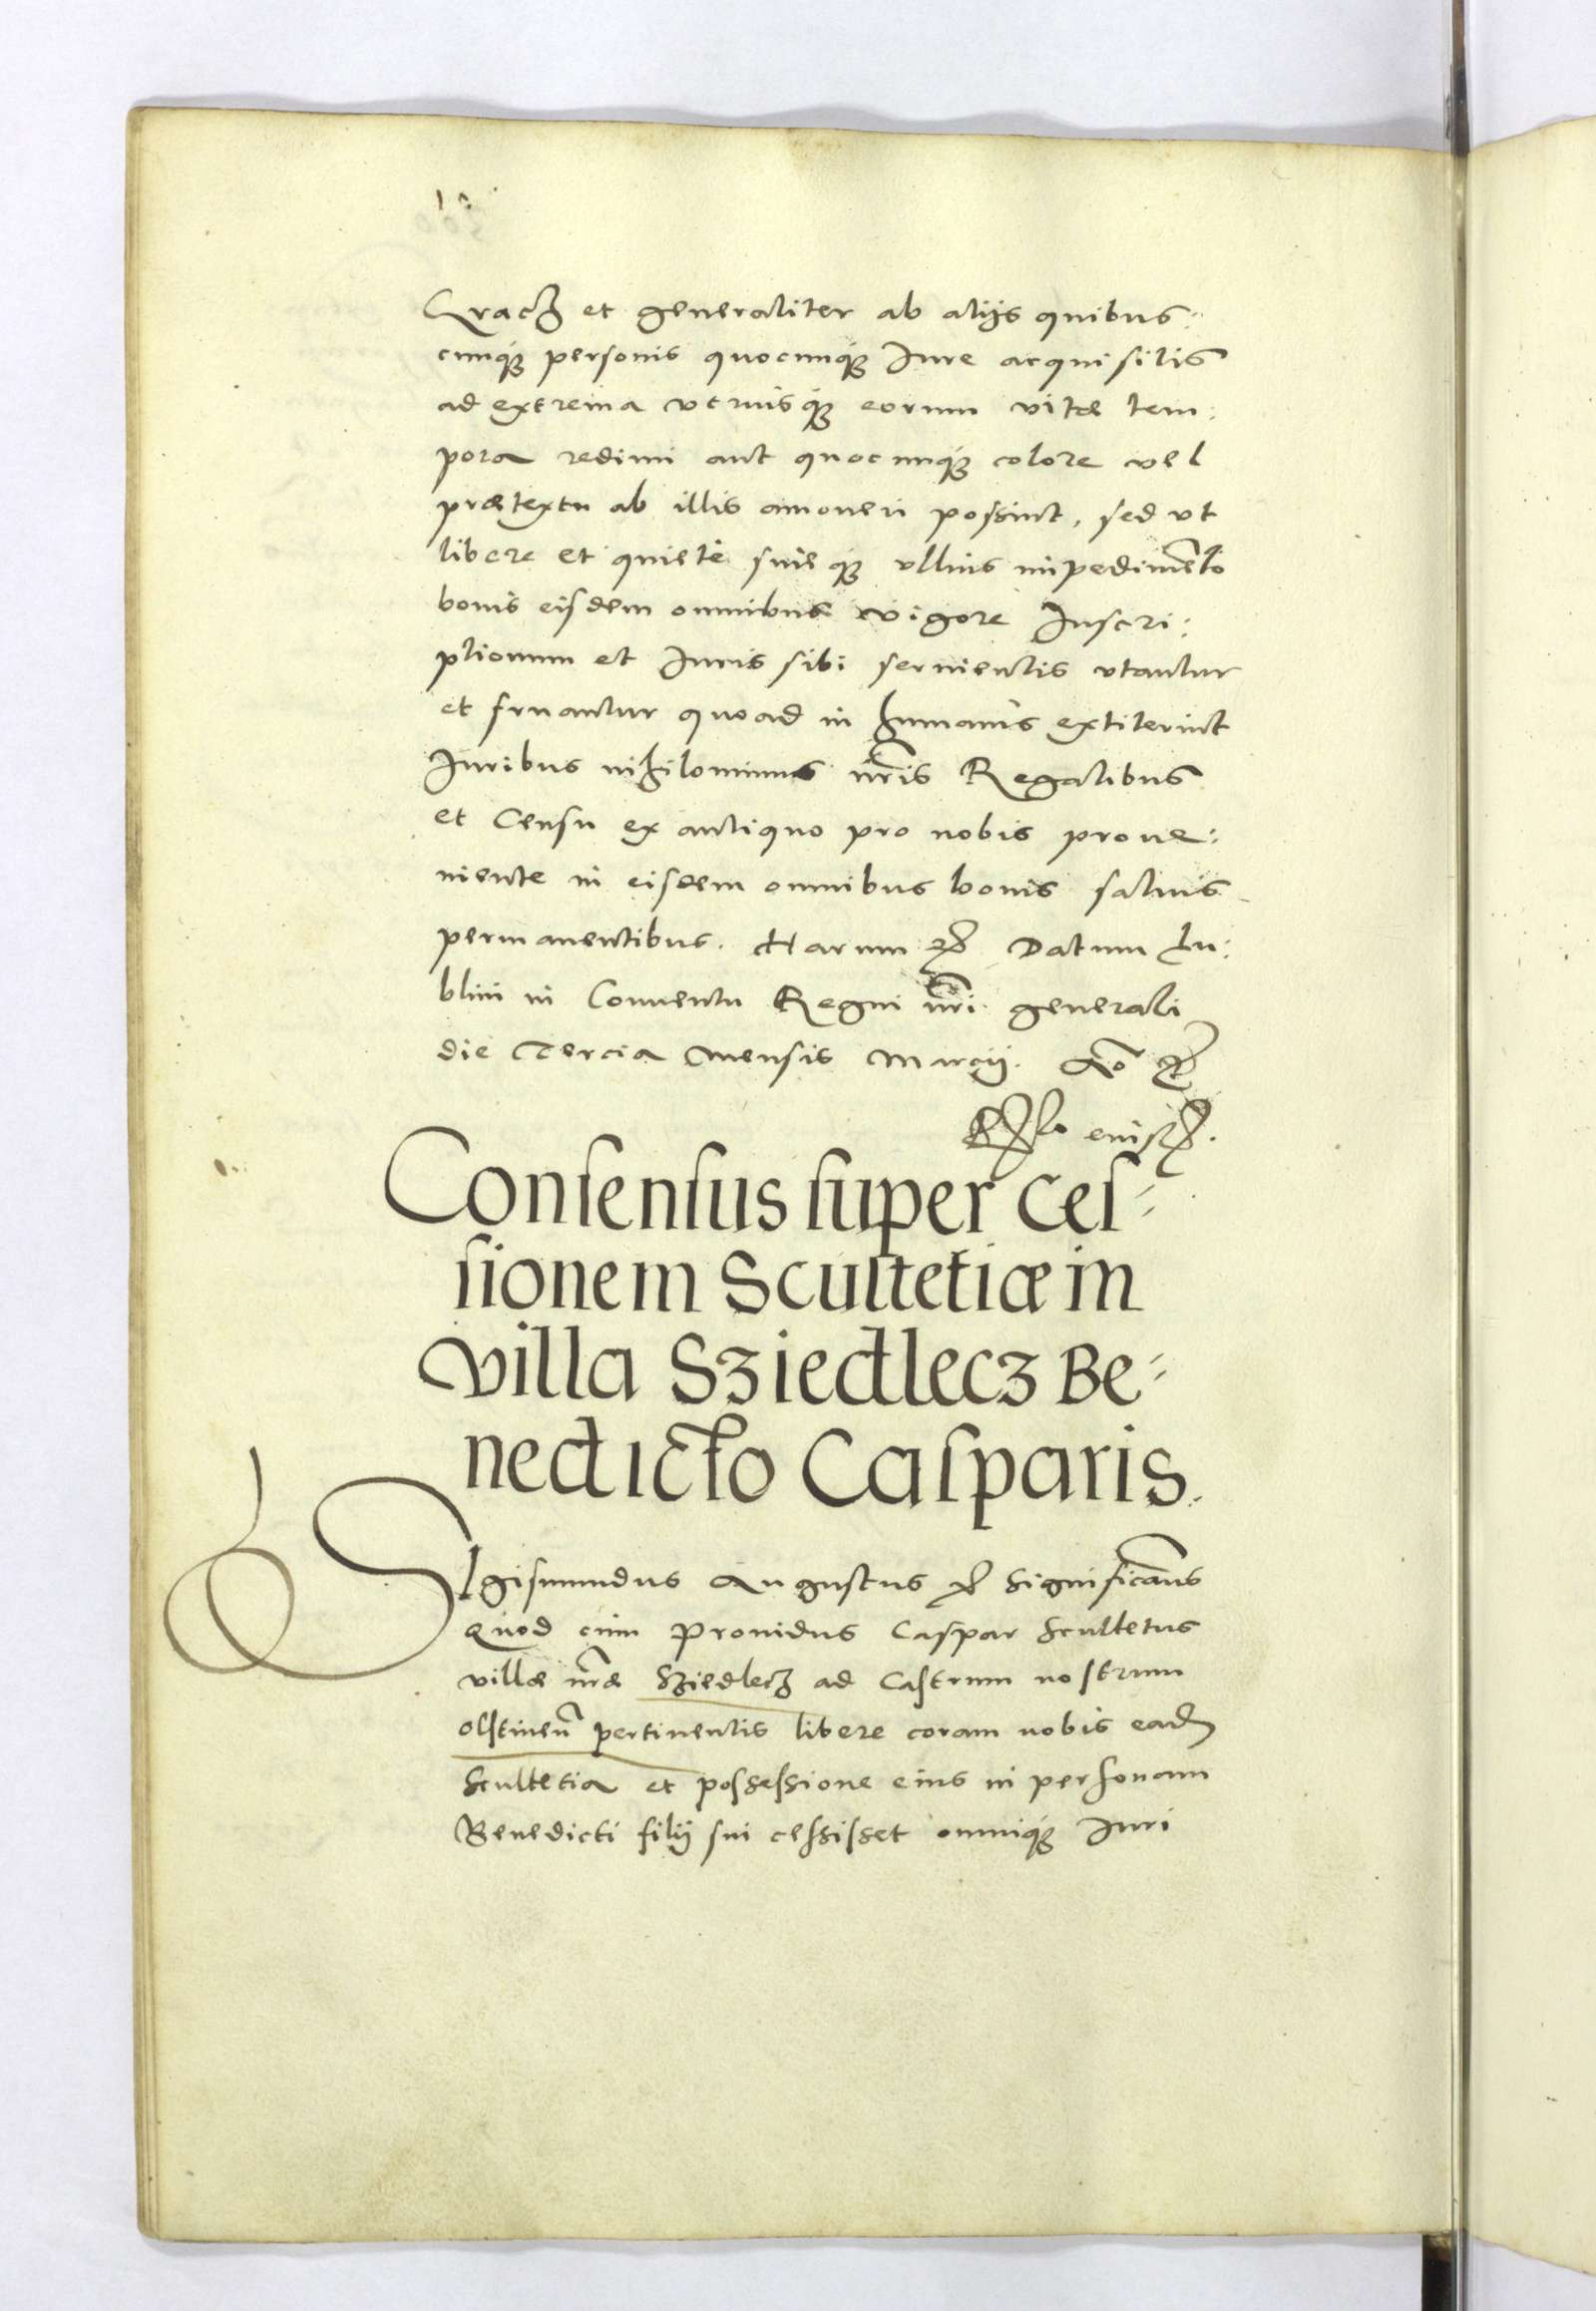 Gracz et generaliter ab alijs quibus:
cunq3 personis quocunq3 Iure acquisitis
ad extrema vtriusq3 eorum vitæ tem:
pora redimi aut quocunq3 colore vel
prætextu ab illis amoueri possint, sed vt
libere et quiete sineq3 vllius impedimẽto
bonis eisdem omnibus vigore Inscri:
ptionum et Iuris sibi seruientis vtantur
et fruantur quoad in humanis extiterint
Iuribus nihilominus nr̃is Regalibus
et Censu ex antiquo pro nobis proue:
niente in eisdem omnibus bonis saluis
permanentibus. Harum Datum Lu:
blini in Conuentu Regni nr̃i generali
die Tercia mensis Marcij. Aõ
Consensus super Ces-
sionem Scultetiæ in
villa Sziedlecz Be-
nedicto Casparis.
SIgismundus Augustus Significam̃us
Quod cum Prouidus Caspar Scultetus
villæ nr̃æ Sziedlecz ad Castrum nostrum
Olstineñ pertinentis libere coram nobis ead̃
Scultetia et possessione eius in personam
Benedicti filij sui cessisset omniq3 Iuri